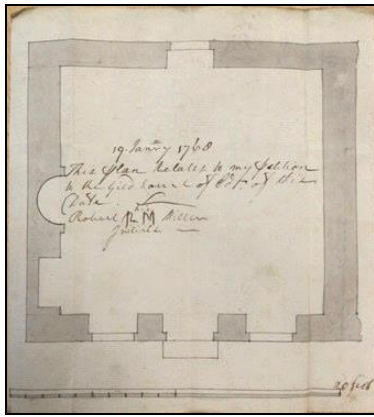 19 Janry 1768
This plan Relates to my Petition
to the Gild Court of Edr of this
Date.
his
Robert R M Miller
Initials
20 feet